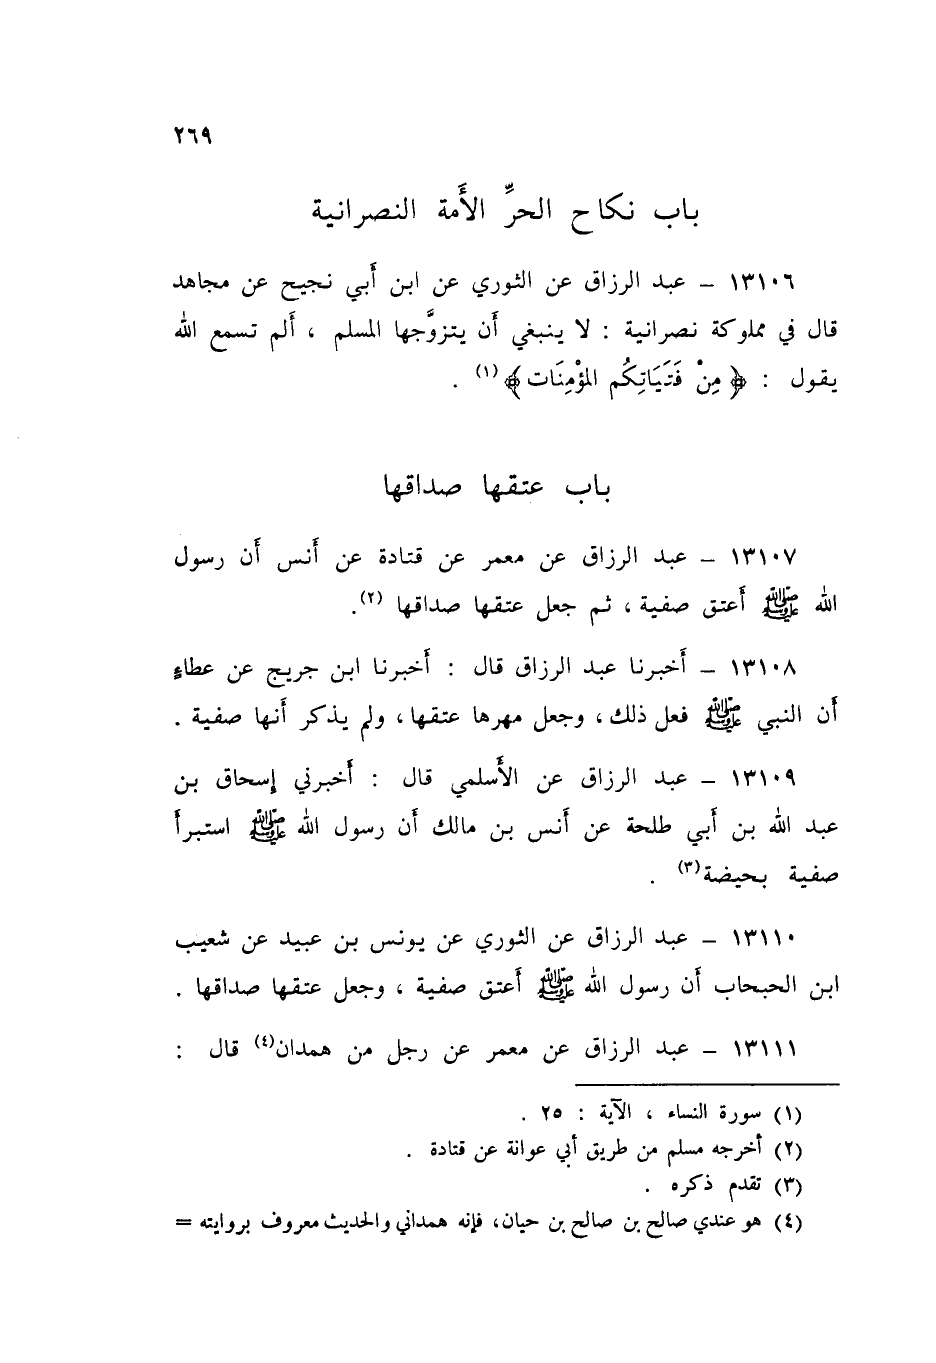 ٢٦٩
باب نكاح الحرِّ الأَمة النصرانية
١٣١٠٦ – عبد الرزاق عن الثوري عن ابن أَبي نجيح عن مجاهد
قال في مملوكة نصرانية : لا ينبغي أَن يتزوَّجها المسلم ، أَلم تسمع الله
يقول : ﴿ مِنْ فَتَيَاتِكُم المُؤْمِنَات ﴾ (١) .
باب عتقها صداقها
١٣١٠٧ – عبد الرزاق عن معمر عن قتادة عن أَنس أَن رسول
الله ﷺ أَعتق صفية ، ثم جعل عتقها صداقها (٢).
١٣١٠٨ – أَخبرنا عبد الرزاق قال : أَخبرنا ابن جريج عن عطاءٍ
أَن النبي ﷺ فعل ذلك ، وجعل مهرها عتقها ، ولم يذكر أَنها صفية .
١٣١٠٩ – عبد الرزاق عن الأَسلمي قال : أَخبرني إسحاق بن
عبد الله بن أَبي طلحة عن أَنس بن مالك أَن رسول الله ﷺ استبرأَ
صفية بحيضة(٣) .
١٣١١٠ – عبد الرزاق عن الثوري عن يونس بن عبيد عن شعيب
ابن الحبحاب أَن رسول الله ﷺ أَعتق صفية ، وجعل عتقها صداقها .
١٣١١١ – عبد الرزاق عن معمر عن رجل من همدان(٤) قال :
(١) سورة النساء ، الآية : ٢٥ .
(٢) أخرجه مسلم من طريق أبي عوانة عن قتادة .
(٣) تقدم ذكره .
(٤) هو عندي صالح بن صالح بن حيان، فإنه همداني والحديث معروف بروايته =